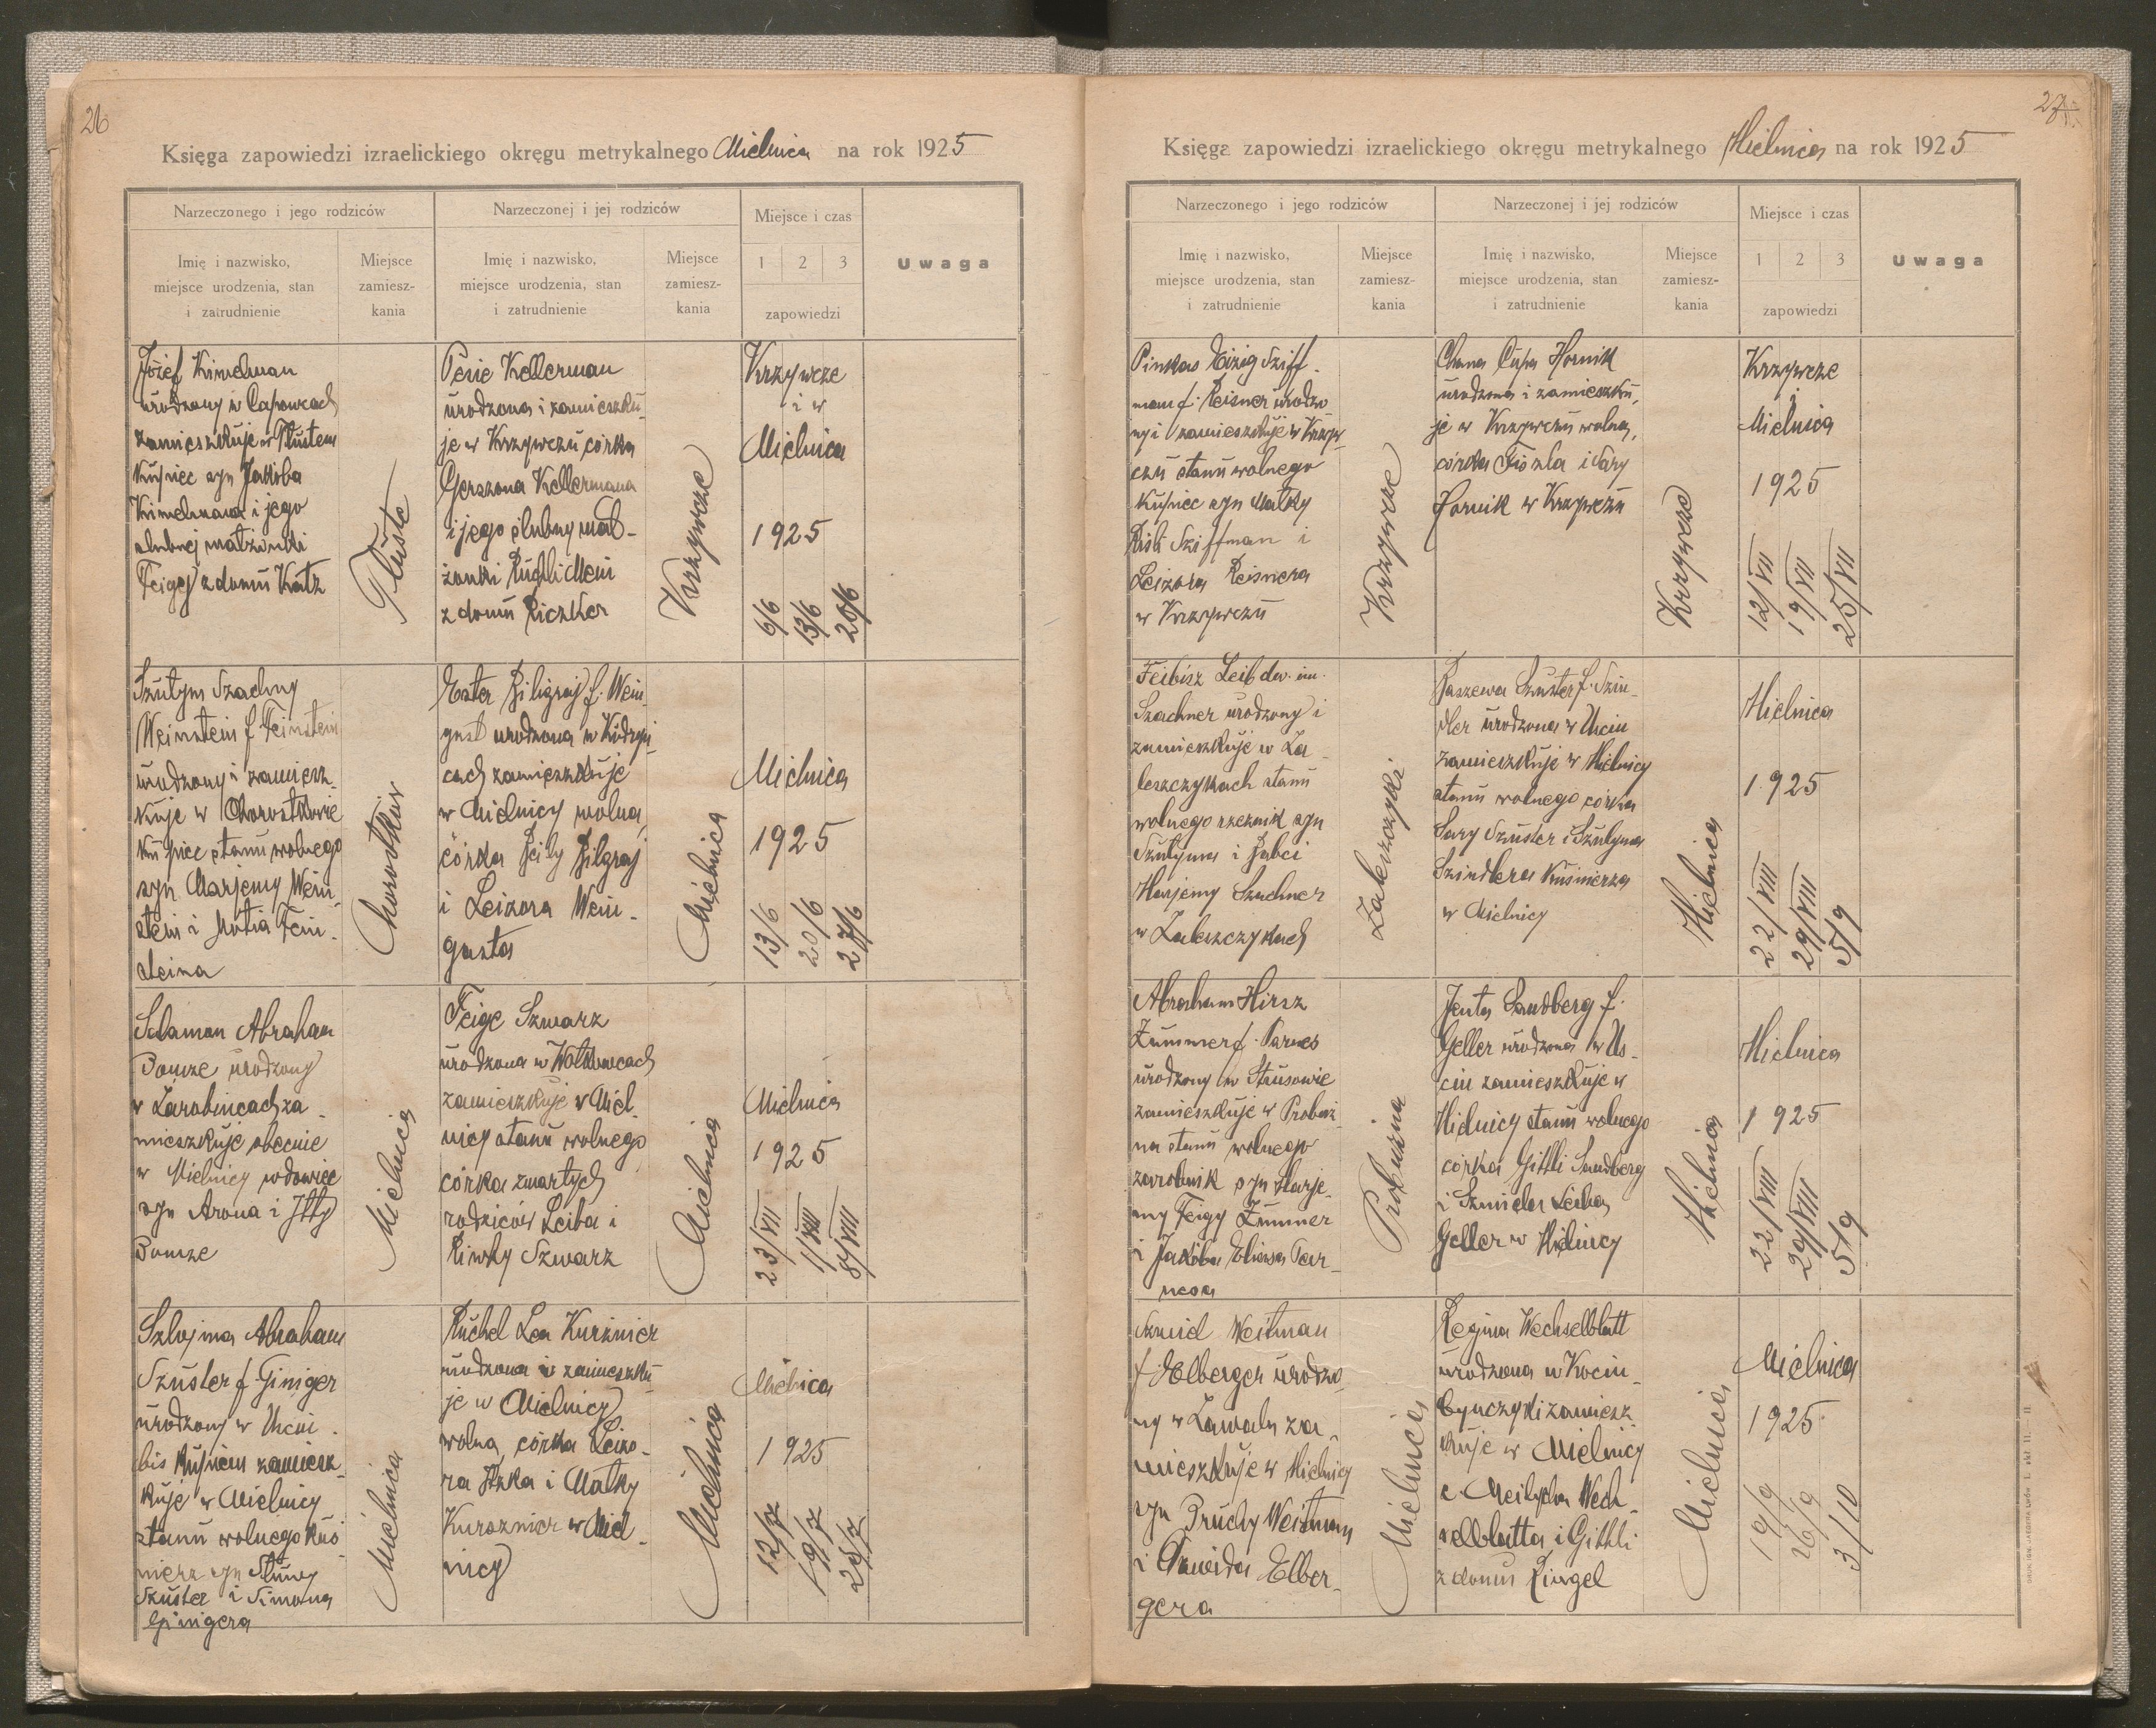 26
Księga zapowiedzi izraelickiego okręgu metrykalnego Mielnica na rok 1925
Narzeczonego i jego rodziców
Narzeczonej i jej rodziców
Miejsce i czas
Uwaga
Imię i nazwisko,
miejsce urodzenia, stan
i zatrudnienie
Miejsce
zamiesz-
kania
Imię i nazwisko,
miejsce urodzenia, stan
i zatrudnienie
Miejsce
zamiesz-
kania
1 2 3
zapowiedzi
Józef Kimelman
urodzony w Capowcach
zamieszkuje w Tłustem
kupiec syn Jakóba
Kimelmana i jego
ślubnej małżonki
Feigej z domu Katz
Tłuste
Pesie Kellerman
urodzona i zamieszku-
je w Krzywczu córka
Gerszona Kellermana
i jego ślubny mał-
żonki Ruchli Meni
z domu Riczker
Krzywcze
Krzywcze
i w
Mielnica
1925
6/6 13/6 20/6
Szulym Szachny
Weinstein f. Feinstein
urodzony i zamiesz-
kuje w Chorostkowie
kupiec stanu wolnego
syn Marjemy Wein-
stein i Motia Fein-
steina
Chorostków
Ester Bilgraj f. Wein-
gast urodzona w Kudryń-
cach zamieszkuje
w Mielnicy wolna
córka Beily Bilgraj
i Leizora Wein-
gasta
Mielnica
Mielnica
1925
13/6 20/6 27/6
Salamon Abraham
Bomze urodzony
w Zarobincach za-
mieszkuje obecnie
w Mielnicy wdowiec
syn Arona i Itty
Bomze
Mielnica
Feige Szwarz
urodzona w Wołkowcach
zamieszkuje w Miel-
nicy stanu wolnego
córka zmarłych
rodziców Leiba i
Riwky Szwarz
Mielnica
Mielnica
1925
23/VII 1/VIII 8/VIII
Szlojma Abraham
Szuster f. Giniger
urodzony w Uściu
bis kupiem zamiesz-
kuje w Mielnicy
stanu wolnego kuś-
nierz syn
Szuster i Simona
Ginigera
Mielnica
Ruchel Lea Kurźnier
urodzona i zamieszku-
je w Mielnicy
wolna, córka Leizo-
ra Itzka i Małky
Kursznier w Miel-
nicy
Mielnica
Mielnica
1925
12/7 19/7 25/7
27
Księga zapowiedzi izraelickiego okręgu metrykalnego Mielnica na rok 1925
Narzeczonego i jego rodziców
Narzeczonej i jej rodziców
Miejsce i czas
Uwaga
Imię i nazwisko,
miejsce urodzenia, stan
i zatrudnienie
Miejsce
zamiesz-
kania
Imię i nazwisko,
miejsce urodzenia, stan
i zatrudnienie
Miejsce
zamiesz-
kania
1 2 3
zapowiedzi
Pinkas Eizig Sziff-
man f. Reisner urodzo-
ny i zamieszkuje w Krzyw-
czu stanu wolnego
kupiec syn Małky
Risli Sziffman i
Leizora Reisnera
w Krzywczu
Krzywcze
Chana Cypa Hornik
urodzona i zamieszku-
je w Krzywczu wolna,
córka Fiszla i Sary
Hornik w Krzywczu
Krzywcze
Krzywcze
i
Mielnica
1925
12/VII 19/VII 25/VII
Feibisz Leib dw. im.
Szachner urodzony i
zamieszkuje w Za-
leszczykach stanu
wolnego rzeznik syn
Szulyma i Babci
Marjemy Szachner
w Zaleszczykach
Zaleszczyki
Baszewa Szuster f. Szin-
dler urodzona w Uściu
zamieszkuje w Mielnicy
stanu wolnego córka
Sary Szuster i Szulyma
Szindlera kuśnierza
w Mielnicy
Mielnica
Mielnica
1925
22/VIII 29/VIII 5/9
Abraham Hirsz
Zummer f. Parnes
urodzony w Strusowie
zamieszkuje w Probuż-
na stanu wolnego
zarobnik syn Marje-
my Feigy Zummer
i Jakóba Eliasza Par-
nesa
Probużna
Jenta Sandberg f.
Geller urodzona w Us-
ciu zamieszkuje w
Mielnicy stanu wolnego
córka Gittli Sandberg
i Szmiela Leiba
Geller w Mielnicy
Mielnica
Mielnica
1925
22/VIII 29/VIII 5/9
Szmiel Weitman
f. Elberger urodzo-
ny w Zawalu za-
mieszkuje w Mielnicy
syn Bruchy Weitman
i Dawida Elber-
gera
Mielnica
Regina Wechselblatt
urodzona w Kociu-
bynczyki zamiesz-
kuje w Mielnicy
c. Meilecha Wech-
selblatta i Gittli
z domu Ringel
Mielnica
Mielnica
1925
19/9 26/9 3/10